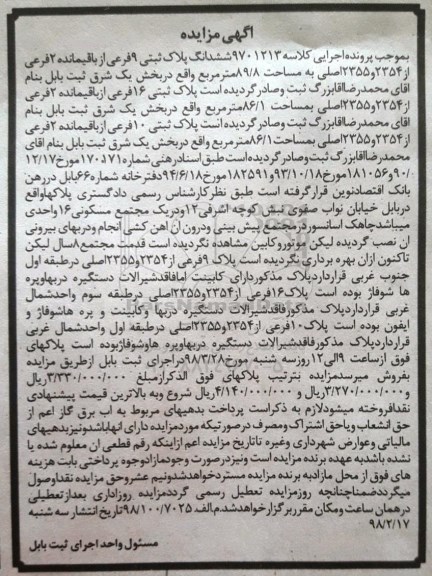 آگهی مزایده
بموجب پرونده اجرایی کلاسه ۹۷۰۱۲۱۳ ششدانگ پلاک ثبتی ۹فرعی از باقیمانده ۲فرعی
از ۲۳۵۴و۲۳۵۵اصلی به مساحت ۸۹/۸مترمربع واقع دربخش یک شرق ثبت بابل بنام
اقای محمدرضا اقابزرگ ثبت وصادر گردیده است پلاک ثبتی ۱۶فرعی ازباقیمانده ۲فرعی
از۲۳۵۴و۲۳۵۵اصلی بمساحت ۸۶/۱مترمربع واقع دربخش یک شرق ثبت بابل بنام
اقای محمدرضااقابزرگ ثبت وصادر گردیده است پلاک ثبتی ۱۰فرعی ازباقیمانده ۲فرعی
از۲۳۵۴و۲۳۵۵اصلی بمساحت ۸۶/۱مترمربع واقع دربخش یک شرق ثبت بابل بنام اقای
محمدرضااقابزرگ ثبت وصادرگردیده است طبق اسنادرهنی شماره ۱۷۰۱۷۱مورخ۱۲/۱۷
/۹۰و۱۸۱۰۵۶مورخ۹۳/۱۰/۱۸و۱۸۲۵۹۱مورخ۹۴/۶/۱۸دفترخانه شماره ۶۶بابل دررهن
بانک اقتصادنوین قرارگرفته است طبق نظرکارشناس رسمی دادگستری پلاکهاواقع
دربابل خیابان نواب صفوی نبش کوچه اشرفی ۱۲ودریک مجتمع مسکونی ۱۶واحدی
میباشدچاهک اسانسوردرمجتمع پیش بینی ودرون ان اهن کشی انجام ودربهای بیرونی
ان نصب گردیده لیکن موتوروکابین مشاهده نگردیده است قدمت مجتمع۸سال لیکن
تاکنون ازان بهره برداری نگردیده است پلاک ۹فرعی از۲۳۵۴و۲۳۵۵اصلی درطبقه اول
جنوب غربی قرارداردپلاک مذکوردارای کابینت امافاقدشیرالات دستگیره دربهاوپره
ها شوفاژ بوده است پلاک۱۶فرعی از۲۳۵۴و۲۳۵۵اصلی درطبقه سوم واحدشمال
غربی قرارداردپلاک مذکورفاقدشیرالات دستگیره دربها وکابینت و پره هاشوفاژ و
ایفون بوده است پلاک۱۰فرعی از۲۳۵۴و۲۳۵۵اصلی درطبقه اول واحدشمال غربی
قرارداردپلاک مذکورفاقدشیرالات دستگیره دربهاوپره هاوشوفاژبوده است پلاکهای
فوق ازساعت ۹الی۱۲روزسه شنبه مورخ۹۸/۳/۲۸دراجرای ثبت بابل ازطریق مزایده
بفروش میرسدمزایده بترتیب پلاکهای فوق الذکرازمبلغ ۳/۳۳۰/۰۰۰/۰۰۰ریال
و۳/۲۷۰/۰۰۰/۰۰۰ریال و ۴/۱۴۰/۰۰۰/۰۰۰ریال شروع وبه بالاترین قیمت پیشنهادی
نقدافروخته میشودلازم به ذکراست پرداخت بدهیهای مربوط به اب برق گاز اعم از
حق انشعاب ویاحق اشتراک ومصرف درصورتیکه موردمزایده دارای انهاباشدونیزبدهیهای
مالیاتی وعوارض شهرداری وغیره تاتاریخ مزایده اعم ازاینکه رقم قطعی ان معلوم شده یا
نشده باشدبه عهده برنده مزایده است ونیزدرصورت وجودمازادوجوه پرداختی بابت هزینه
های فوق از محل مازادبه برنده مزایده مسترد خواهدشدونیم عشروحق مزایده نقداوصول
میگرددضمناچنانچه روزمزایده تعطیل رسمی گرددمزایده روزاداری بعدازتعطیلی
درهمان ساعت ومکان مقرربرگزارخواهدشد.م الف ۹۸/۱۰۰/۷۰۲۵تاریخ انتشار سه شنبه
۹۸/۲/۱۷
مسئول واحد اجرای ثبت بابل